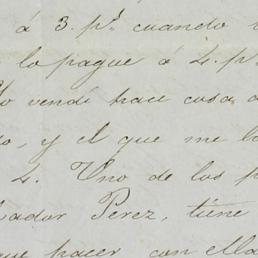 á 3. pr. cuando
lo pague á 4. p
Yo vendí hace cosa
o, y el que me
4. Uno de los
ador Perez, tiene
que hacer con ella